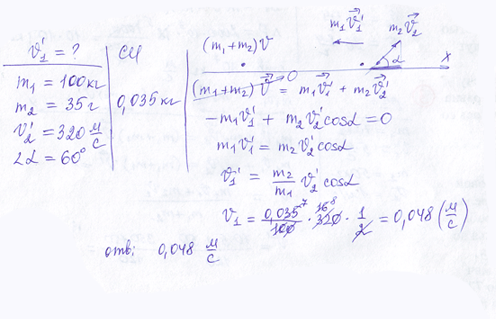 v₁' = ? СИ
m₁ = 100кг
m₂ = 35г 0,035кг
v₂' = 320 м/с
∠α = 60°
(m₁+m₂)v⃗ m₁v⃗₁' m₂v⃗₂' α x
(m₁+m₂)v⃗ → 0 = m₁v⃗₁' + m₂v⃗₂'
-m₁v₁' + m₂v₂'cosα = 0
m₁v₁' = m₂v₂'cosα
v₁' = m₂/m₁ v₂'cosα
v₁ = 0,035/100 · 320 · 1/2 = 0,048 (м/с)
отв: 0,048 м/с